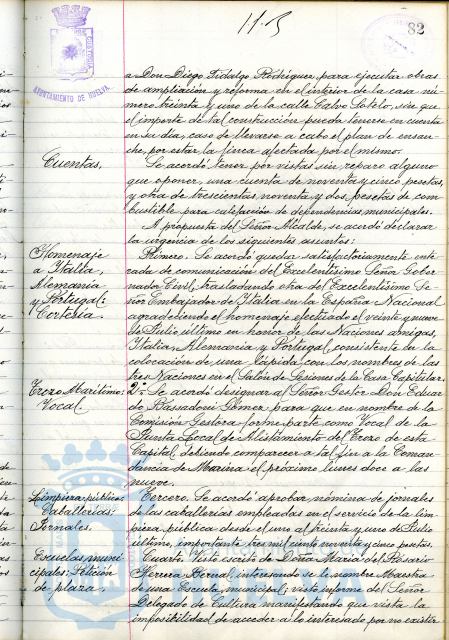 11-B
82
AYUNTAMIENTO DE HUELVA
a Don Diego Fidalgo Rodriguez, para ejecutar obras
de ampliación y reforma en el interior de la casa nú-
mero treinta y uno de la calle Calvo Sotelo, sin que
el importe de tal construcción pueda tenerse en cuenta
en su día, caso de llevarse a cabo el plan de ensan-
che, por estar la finca afectada por el mismo.
Cuentas.
Se acordó tener por vistas sin reparo alguno
que oponer, una cuenta de noventa y cinco pesetas,
y otra de trescientas, noventa y dos pesetas de com-
bustible para calefacción de dependencias municipales.
A propuesta del Señor Alcalde, se acordó declarar
la urgencia de los siguientes asuntos:
Homenaje
a Italia,
Alemania
y Portugal:
Cortesia.
Primero. Se acordó quedar satisfactoriamente ente-
rada de comunicación del Excelentísimo Señor Gober-
nador Civil, trasladando otra del Excelentísimo Se-
ñor Embajador de Italia en la España Nacional
agradeciendo el homenaje efectuado el veinte y nueve
de Julio último en honor de las Naciones amigas,
Italia, Alemania y Portugal, consistente en la
colocación de una lápida con los nombres de las
tres Naciones en el Salón de Sesiones de la Casa Capitular.
Trozo Maritimo:
Vocal.
2º. Se acordó designar al Señor Gestor Don Eduar-
do Bassadoni Gómez para que en nombre de la
Comisión Gestora forme parte como Vocal de la
Junta Local de Alistamiento del Trozo de esta
Capital debiendo comparecer a tal fin a la Coman-
dancia de Marina el próximo lunes doce a las
nueve.
Limpieza pública:
Caballerias:
Jornales.
Tercero. Se acordó aprobar nómina de jornales
de las caballerias empleadas en el servicio de la lim-
pieza pública desde el uno al treinta y uno de Julio
último, importante tres mil ciento noventa y cinco pesetas.
Escuelas muni-
cipales: Petición
de plaza.
Cuarto. Visto escrito de Doña Maria del Rosario
Herrera Bernal, interesando se le nombre Maestra
de una Escuela municipal; visto informe del Señor
Delegado de Cultura manifestando que vista la
imposibilidad de acceder a lo interesado por no existir